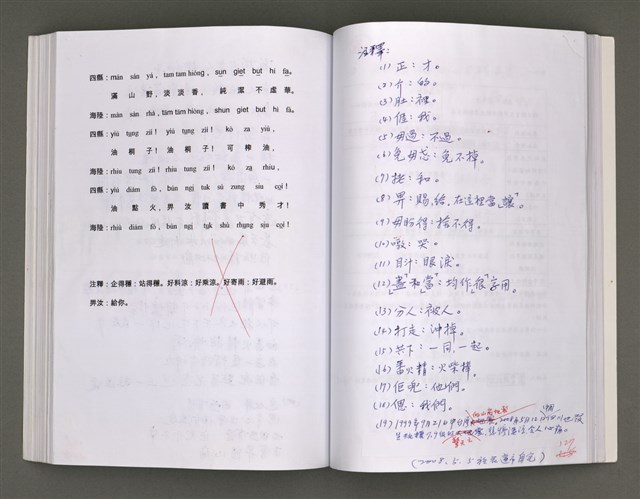 四縣：mán sán yá, tam tam hiông, sun giet but hi fa.
滿山野，淡淡香，純潔不虛華。
海陸：mán sán rhá, tàm tàm hiong, shun giet but hi fà.
四縣：yiù tung zii! yiù tung zii! kó za yiù,
油桐子！油桐子！可榨油，
海陸：rhiu tung zii! rhiu tung zii! kó za rhiu,
四縣：yiù diám fò, bùn ngị tuk sú zung siu coi!
油點火，畀汝讀書中秀才！
海陸：rhiu diám fó, bùn ngị tuk shú rhung siu coi!
注釋：企得穩：站得穩。好料涼：好乘涼。好寄雨：好避雨。
畀汝：給你。
注釋：
(1) 正：才。
(2) 介：的。
(3) 肚：裡。
(4) 𠊎：我。
(5) 毋過：不過。
(6) 免毋忒：免不掉。
(7) 挷：和。
(8) 畀：賜，給，在這裡當「讓」。
(9) 毋盼得：捨不得。
(10) 噭：哭。
(11) 目汁：眼淚。
(12) 「盡」和「當」：均作「很」字用。
(13) 分人：被人。
(14) 打走：沖掉。
(15) 共下：一同，一起。
(16) 番火精：火柴棒。
(17) 佢呢：他們。
(18) 偲：我們。
127
(2008.5.5